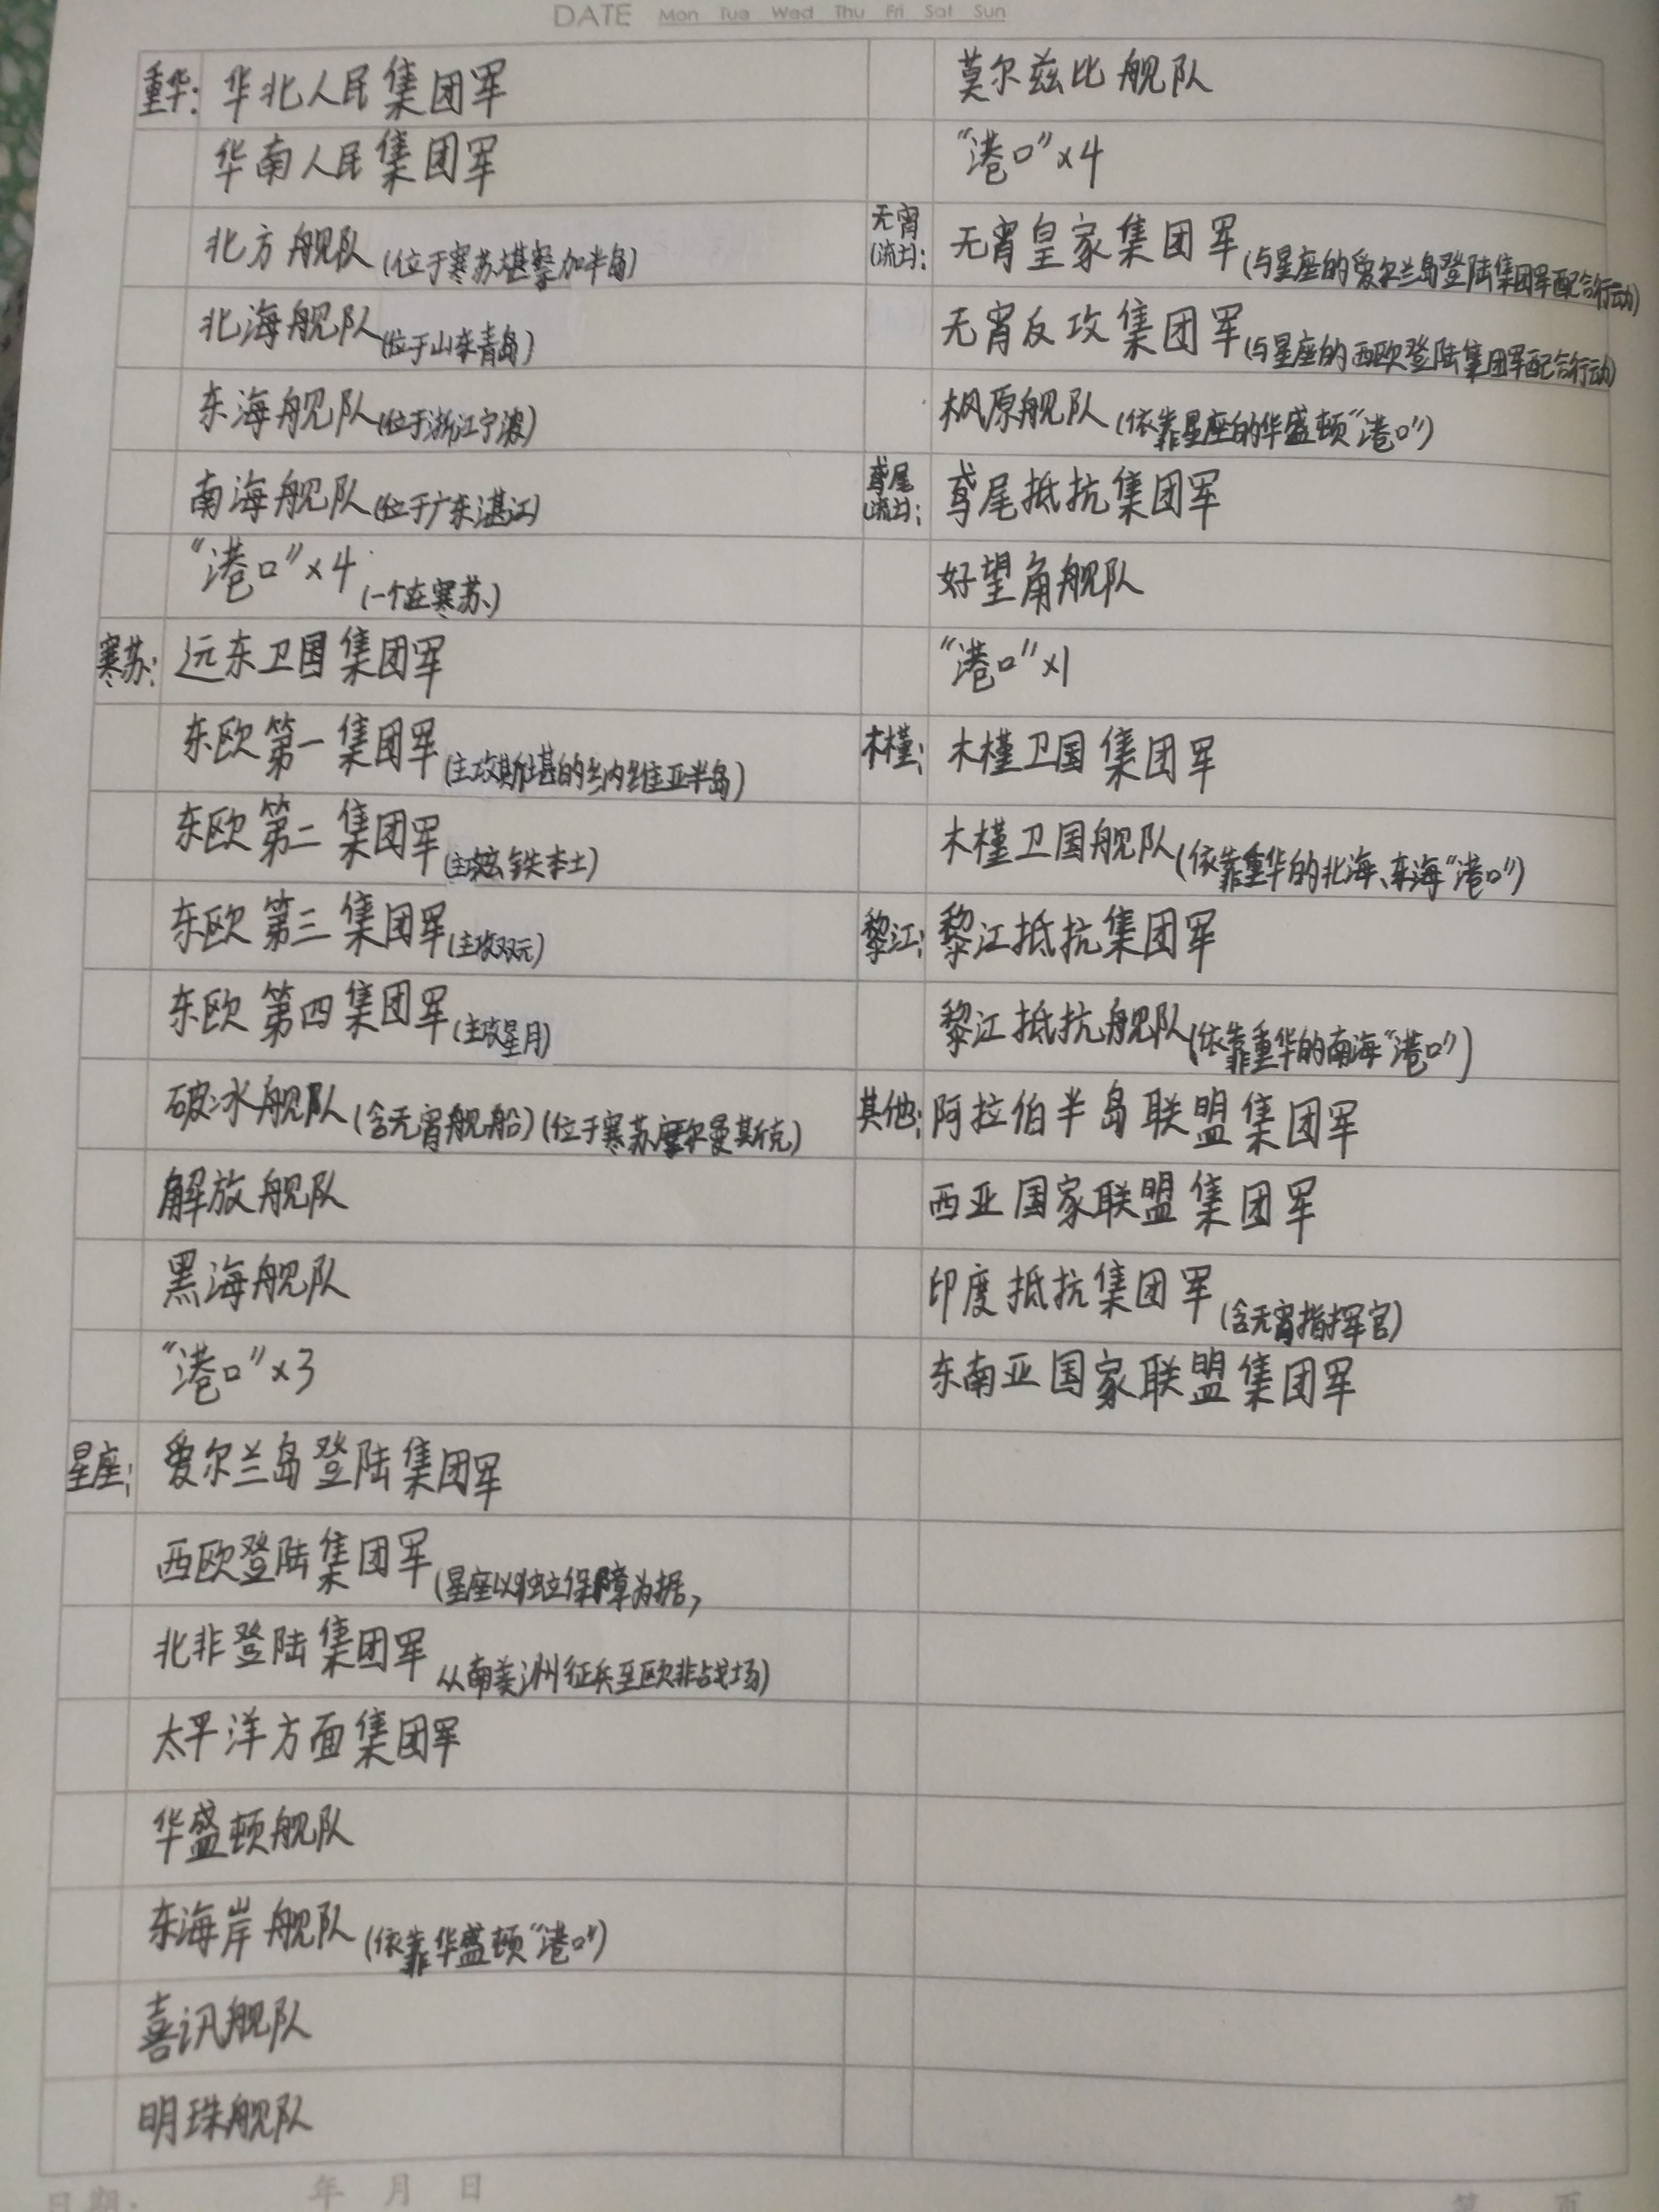 DATE Mon Tue Wed Thu Fri Sat Sun
重华: 华北人民集团军
华南人民集团军
北方舰队(位于寒苏堪察加半岛)
北海舰队(位于山东青岛)
东海舰队(位于浙江宁波)
南海舰队(位于广东湛江)
“港口”×4(一个在寒苏)
寒苏: 远东卫国集团军
东欧第一集团军(主攻斯堪的纳维亚半岛)
东欧第二集团军(主攻玄铁本土)
东欧第三集团军(主攻双元)
东欧第四集团军(主攻星月)
破冰舰队(含无宵舰船)(位于寒苏摩尔曼斯克)
解放舰队
黑海舰队
“港口”×3
星座: 爱尔兰岛登陆集团军
西欧登陆集团军(星座以独立保障为据,
北非登陆集团军 从南美洲征兵至欧非战场)
太平洋方面集团军
华盛顿舰队
东海岸舰队(依靠华盛顿“港口”)
喜讯舰队
明珠舰队
莫尔兹比舰队
“港口”×4
无宵(流亡): 无宵皇家集团军(与星座的爱尔兰岛登陆集团军配合行动)
无宵反攻集团军(与星座的西欧登陆集团军配合行动)
枫原舰队(依靠星座的华盛顿“港口”)
鸢尾(流亡): 鸢尾抵抗集团军
好望角舰队
“港口”×1
木槿: 木槿卫国集团军
木槿卫国舰队(依靠重华的北海、东海“港口”)
黎江: 黎江抵抗集团军
黎江抵抗舰队(依靠重华的南海“港口”)
其他: 阿拉伯半岛联盟集团军
西亚国家联盟集团军
印度抵抗集团军(含无宵指挥官)
东南亚国家联盟集团军
日期: 年 月 日
第 页